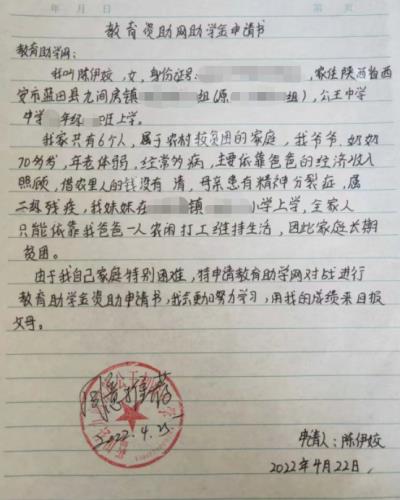 年 月 日
第 页
教育资助网助学金申请书
教育助学网:
我叫陈伊姣,女,身份证号: 家住陕西省西
安市蓝田县九间房镇 组(原 组),公王中学
中学 年级 班上学。
我家共有6个人,属于农村较贫困的家庭,我爷爷,奶奶
70岁多,年老体弱,经常外病,主要依靠爸爸的经济收入
照顾,借农里人的钱没有 清,母亲患有精神分裂症,属
二级残疾,我妹妹在 镇 小学上学,全家人
只能依靠我爸爸一人农闲打工维持生活,因此家庭长期
贫困。
由于我自己家庭特别困难,特申请教育助学网对我进行
教育助学金资助申请书,我会更加努力学习,用我的成绩来回报
父母。
同意推荐
2022.4.25.
申请人:陈伊姣
2022年4月22日,